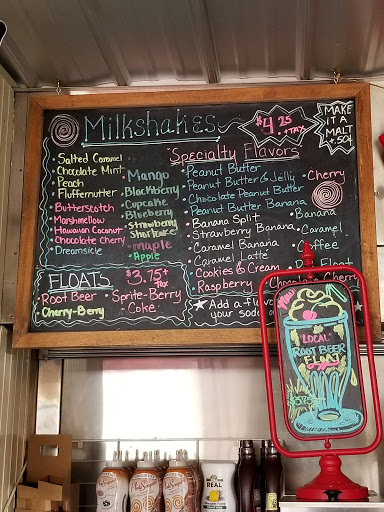 Milkshakes
$4.25
+TAX
MAKE
IT A
MALT
+.50¢
Specialty Flavors
• Salted Caramel
• Chocolate Mint
• Peach
• Fluffernutter
• Butterscotch
• Marshmellow
• Hawaiian Coconut
• Chocolate Cherry
• Dreamsicle
• Mango
• Blackberry
• Cupcake
• Blueberry
• Strawberry
Shortcake
• maple
• Apple
• Peanut Butter
• Peanut Butter & Jelly
• Chocolate Peanut Butter
• Peanut Butter Banana
• Banana Split
• Strawberry Banana
• Caramel Banana
• Caramel Latte
• Cookies & Cream
• Raspberry
• Cherry
• Banana
• Caramel
Coffee
Float
Chocolate Cherry
FLOATS
$3.75+
TAX
• Root Beer
• Cherry-Berry
• Sprite-Berry
• Coke
Add a
your
LOCAL
ROOT BEER
FLOAT
REAL